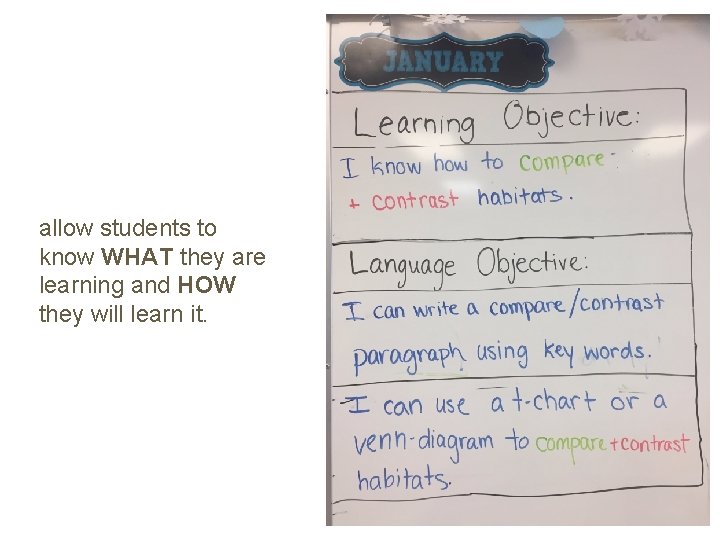 allow students to
know WHAT they are
learning and HOW
they will learn it.
JANUARY
Learning Objective:
I know how to compare
+ contrast habitats.
Language Objective:
I can write a compare/contrast
paragraph using key words.
I can use a t-chart or a
venn-diagram to compare + contrast
habitats.